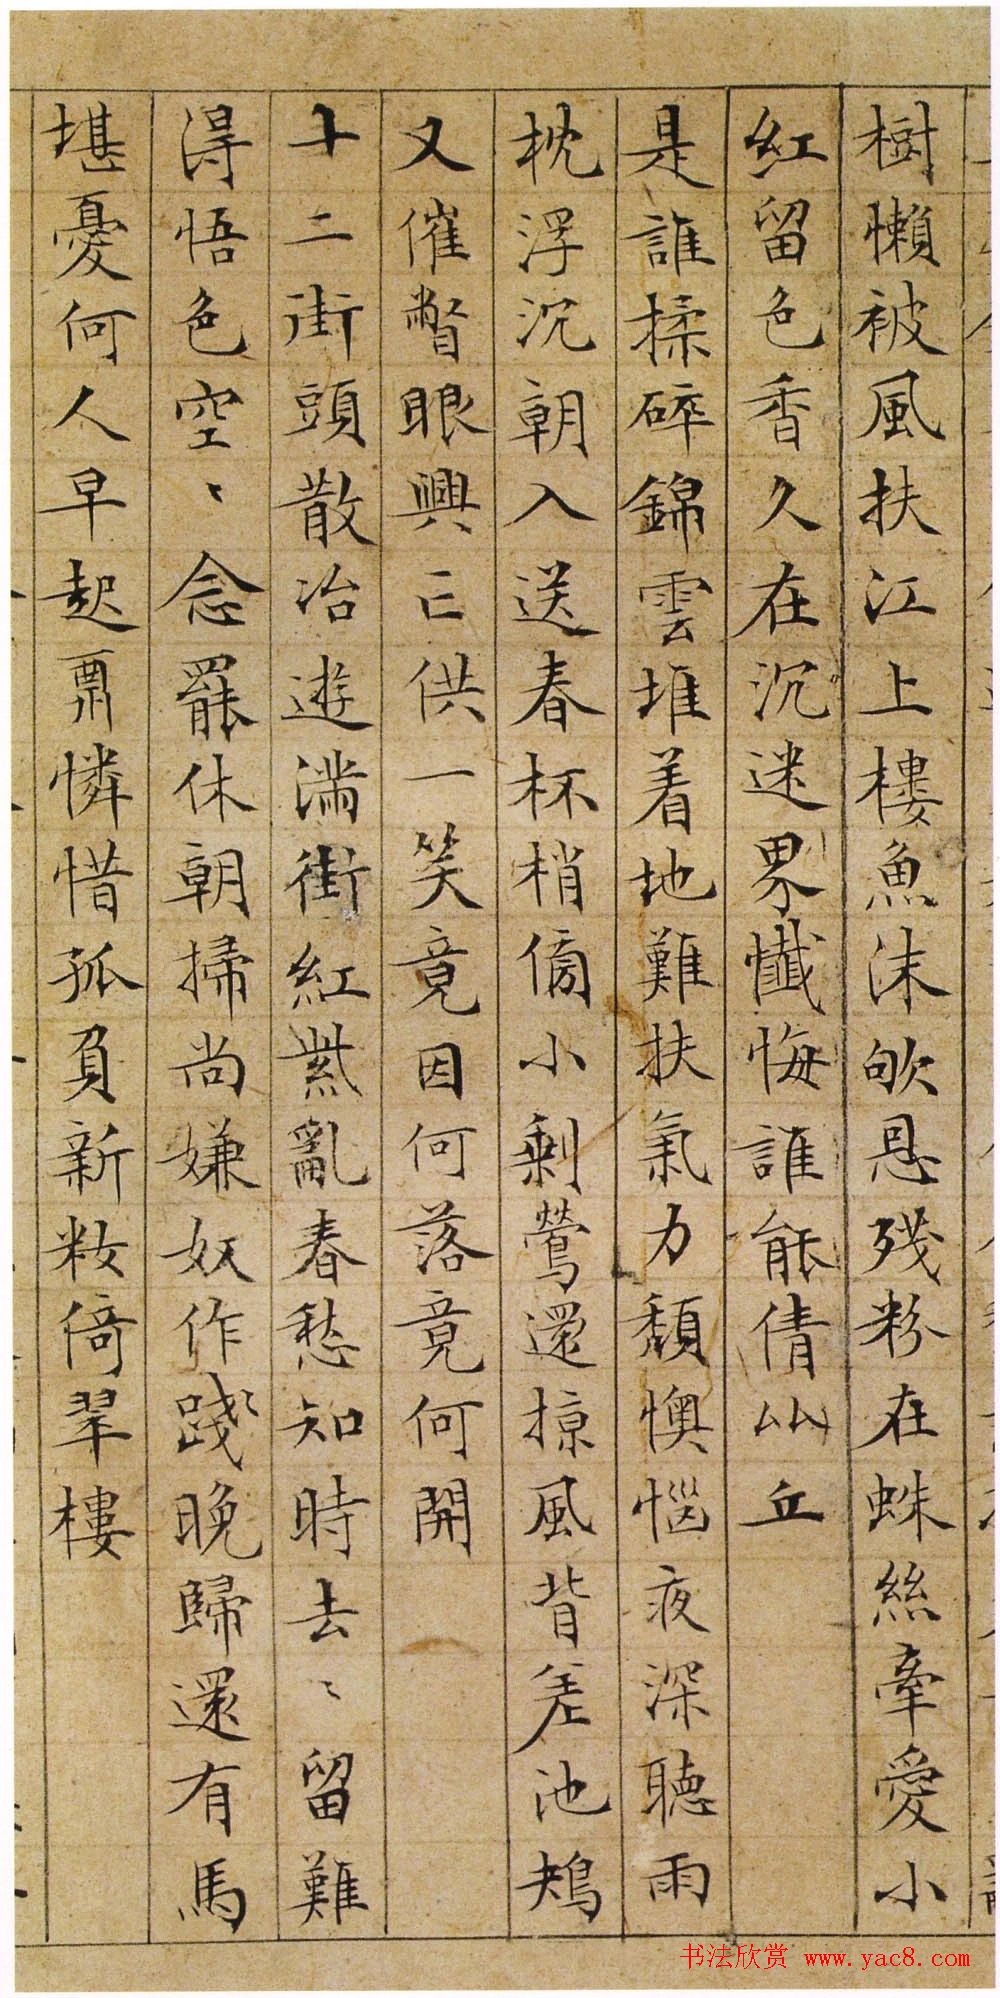 樹懶被風扶江上樓魚沫欨恩殘粉在蛛絲牽愛小
紅留色香久在沉迷界懺悔誰能倩比丘
是誰揉碎錦雲堆着地難扶氣力頹懊惱夜深聽雨
枕浮沉朝入送春杯梢傍小剩鶯還掠風背差池鴂
又催瞥眼興亡供一笑竟因何落竟何開
十二街頭散冶遊滿街紅紫亂春愁知時去〻留難
淂悟色空〻念罷休朝掃尚嫌奴作踐晚歸還有馬
堪憂何人早起憐惜孤負新粧倚翠樓
书法欣赏 www.yac8.com